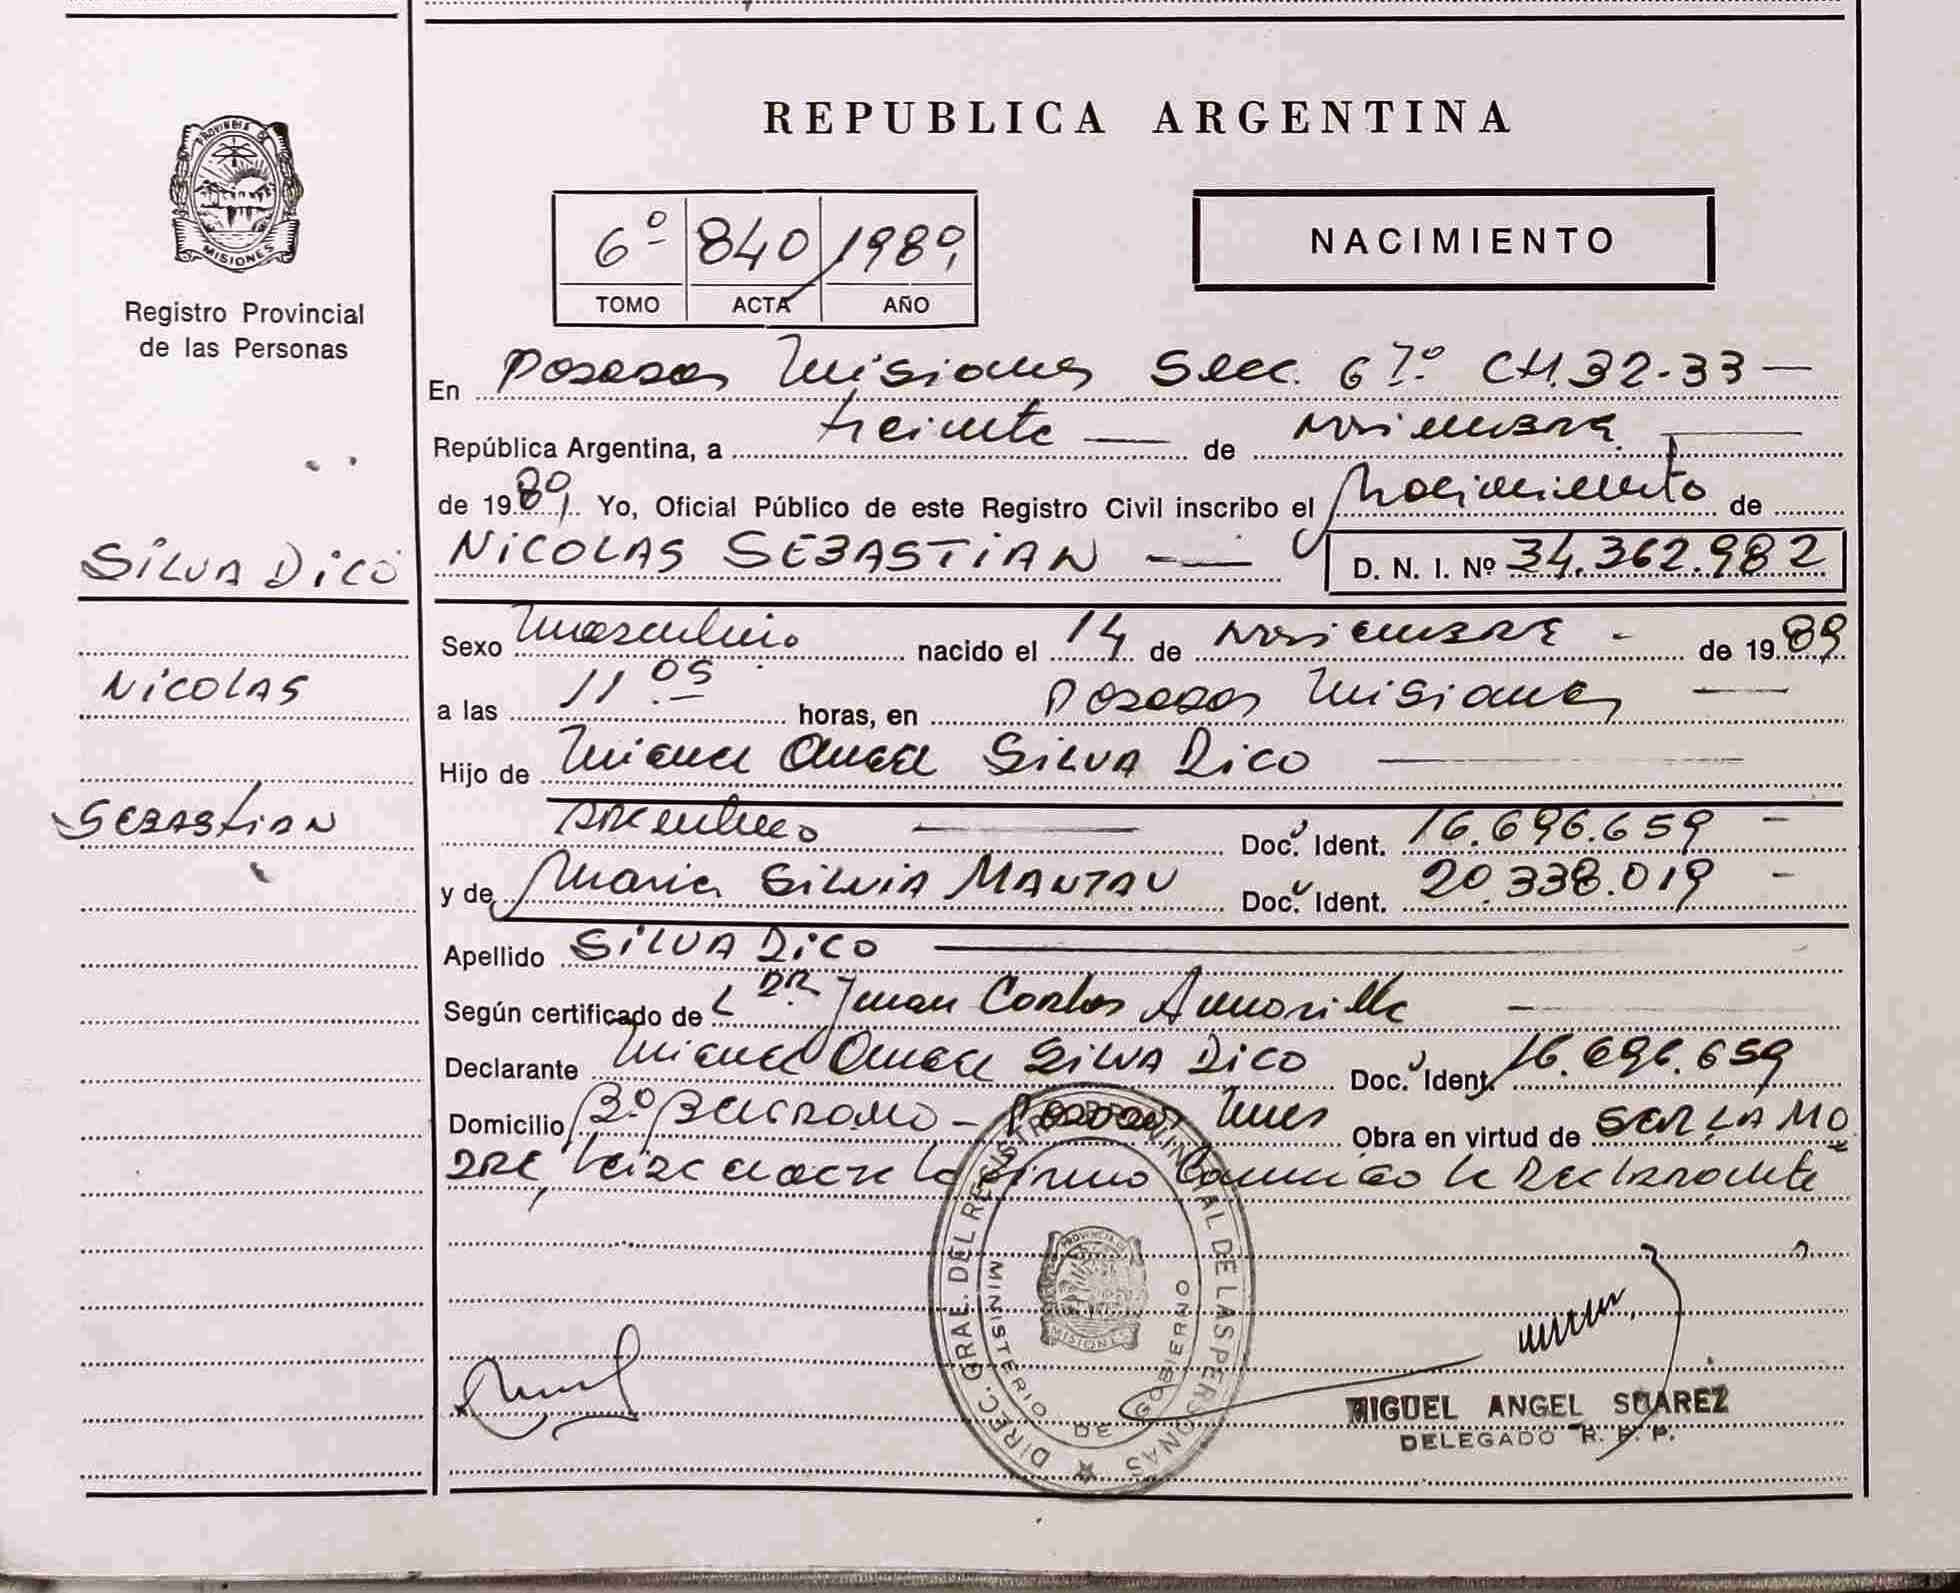 REPUBLICA ARGENTINA
PROVINCIA DE
MISIONES
Registro Provincial
de las Personas
6º 840 1989
TOMO ACTA AÑO
NACIMIENTO
En Posadas Misiones Secc. 67º CH.32-33
República Argentina, a treinta de noviembre
de 1989 Yo, Oficial Público de este Registro Civil inscribo el Nacimiento de
SILVA DICO
NICOLAS SEBASTIAN D. N. I. Nº 34.362.982
Sexo masculino nacido el 14 de noviembre de 1989
NICOLAS
a las 11 05 horas, en Posadas Misiones
Hijo de Miguel Angel SILVA DICO
SEBASTIAN
argentino Doc. Ident. 16.696.659
y de Maria Silvia MANTAU Doc. Ident. 20.338.019
Apellido SILVA DICO
Según certificado de DR Juan Carlos
Declarante Miguel Angel SILVA DICO Doc. Ident. 16.696.659
Domicilio Bº BELGRANO - Posadas Mnes Obra en virtud de SER LA MA
DRE, la firma Conmigo el Declarante
DIREC. GRAL. DEL REGISTRO PROVINCIAL DE LAS PERSONAS
MINISTERIO DE GOBIERNO
PROVINCIA DE
MISIONES
MIGUEL ANGEL SUAREZ
DELEGADO R. P. P.